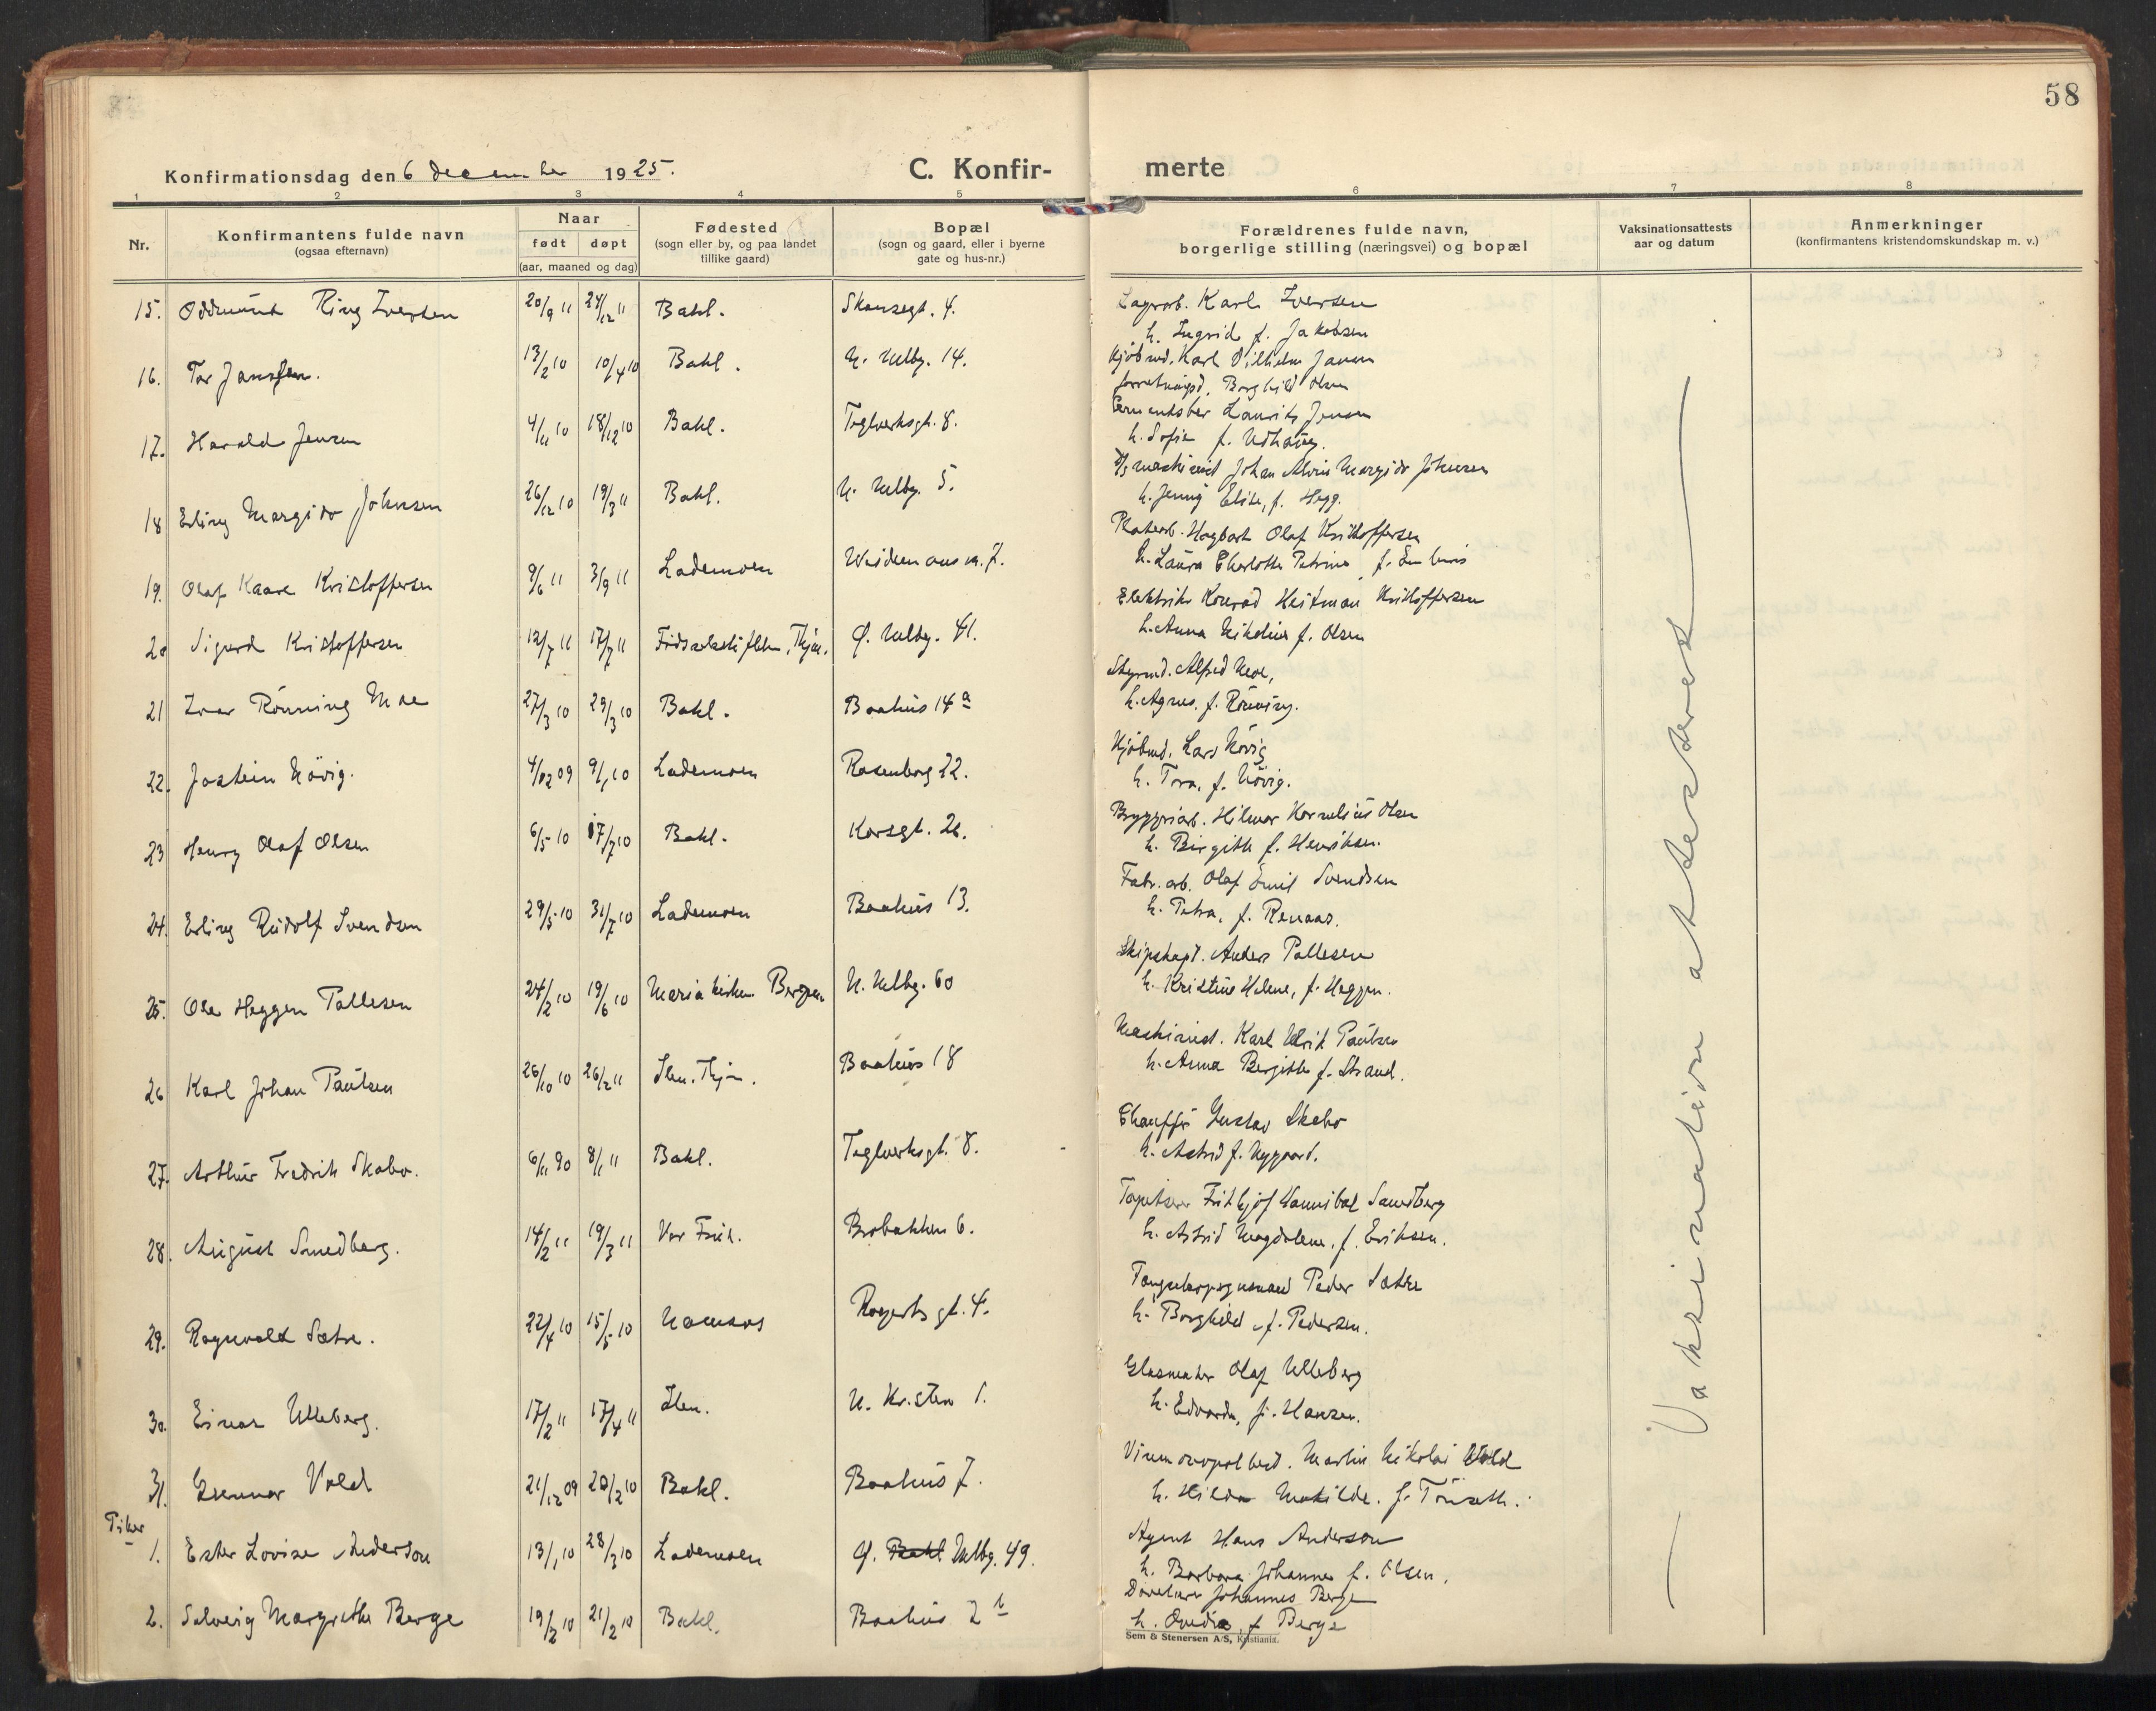 58
Konfirmationsdag den 6 december 1925.
C. Konfir-
merte
1 2 3 4 5 6 7 8
Nr.
Konfirmantens fulde navn
(ogsaa efternavn)
Naar
født døpt
(aar, maaned og dag)
Fødested
(sogn eller by, og paa landet
tillike gaard)
Bopæl
(sogn og gaard, eller i byerne
gate og hus-nr.)
Forældrenes fulde navn,
borgerlige stilling (næringsvei) og bopæl
Vaksinationsattests
aar og datum
Anmerkninger
(konfirmantens kristendomskundskap m. v.)
15. Oddmund Ring Iversen 20/9 11 24/12 11 Bakl. Skansegt. 4. Lagerarb. Karl Iversen
h. Ingrid f. Jakobsen
16. Tor Janssen. 13/2 10 10/4 10 Bakl. N. Mlbg. 14. Kjøbmd. Karl Vilhelm Jansen
forretningsd. Borghild Olsen
17. Harald Jensen 4/11 10 18/12 10 Bakl. Teglverksgt. 8. Laurits Jensen
h. Sofie f. Udhaug.
18 Erling Margido Johnsen 26/12 10 19/3 11 Bakl. N. Mlbg. 5. D/S maskinist Johan Alvin Margido Johnsen
h. Jenny Elise, f. Hegg.
19. Olaf Kaare Kristoffersen 9/6 11 3/9 11 Lademoen Weidemansv. 7. Platearb. Hagbart Olaf Kristoffersen
h. Laura Charlotte Petrine f.
20 Sigurd Kristoffersen 12/7 11 17/7 11 Fødselsstiftelsen, Thjem. Ø. Mlbg. 41. Elektriker Konrad Heitman Kristoffersen
h. Anna Nikoline f. Olsen
21 Ivar Rønning Moe 27/3 10 29/3 10 Bakl. Baahus 14 a Styrmd. Alfred Moe,
h. Agnes. f. Rønning.
22. Jostein Høvig. 4/12 09 9/1 10 Lademoen Rosenborg 22. Kjøbmd. Lars Høvig
h. Tora, f. Høvig.
23 Henry Olaf Olsen 6/5 10 17/7 10 Bakl. Korsgt. 26. Bryggeriarb. Hilmar Kornelius Olsen
h. Birgitte f. Henriksen.
24. Erling Rudolf Svendsen 29/5 10 31/7 10 Lademoen Baahus 13. Fabr. arb. Olaf Emil Svendsen
h. Petra, f. Renaas.
25. Ole Heggen Pallesen 24/2 10 19/6 10 Mariakirken Bergen N. Mlbg. 60 Skipskapt. Anders Pallesen
h. Kristine Helene, f. Heggen.
26 Karl Johan Paulsen 26/10 10 26/2 11 Ilen. Thjm. Baahus 18 Maskinist. Karl Ulrik Paulsen
h. Anna Bergitte f. Strand.
27. Arthur Fredrik Skabo. 6/11 90 8/1 11 Bakl. Teglverksgt. 8. Chauffør Gustav Skabo
h. Astrid f. Nygaard.
28. August Smedberg. 14/2 11 19/3 11 Vor Frue. Brobakken 6. Tapetserer Frithjof Hannibal Smedberg
h. Astrid Magdalene, f. Eriksen.
29. Ragnvald Sætre. 22/4 10 15/5 10 Namsos Rogerts gt. 4. Fængselsopsynsmand Peder Sætre
h. Borghild f. Pedersen.
30. Einar Ulleberg. 17/2 11 17/4 11 Ilen. N. Kr.sten 1. Glasmester Olaf Ulleberg
h. Edvarda, f. Hansen.
31. Gunnar Vold 21/12 09 20/2 10 Bakl. Baahus 7. Vinmonopolbest. Martin Nikolai Vold
h. Hilda Matilde. f. Tørseth.
Piker
1. Ester Lovise Anderson 13/1 10 28/3 10 Lademoen Ø. Bakl Mlbg. 49. Agent Hans Anderson
h. Barbara Johanne f. Olsen.
2. Solveig Margrethe Berge 19/2 10 21/2 10 Bakl. Baahus 2 b Johannes Berge
h. Ovedie, f Berge
Vaksination attestert
Sem & Stenersen A/S, Kristiania.